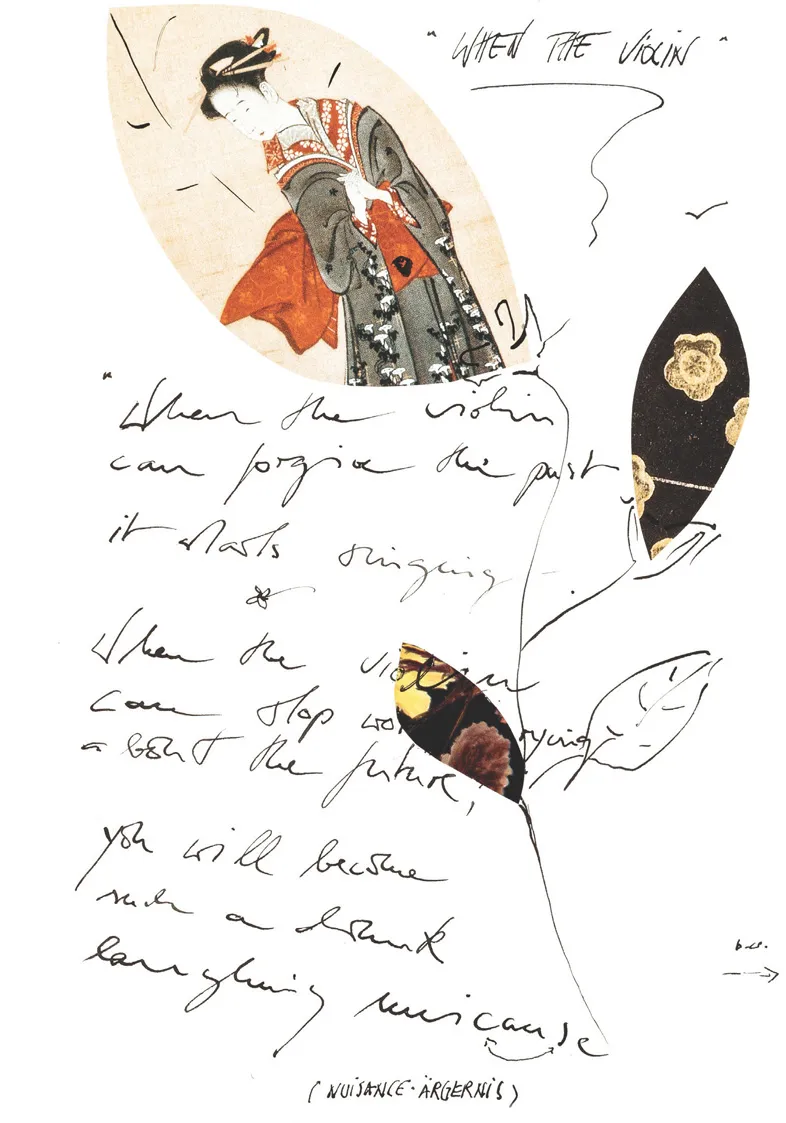 "WHEN THE VIOLIN"
"When the violin
can forgive the past
it starts singing –
When the violin
can stop worrying
about the future,
you will become
such a drunk
laughing nuicanse
(NUISANCE·ÄRGERNIS)